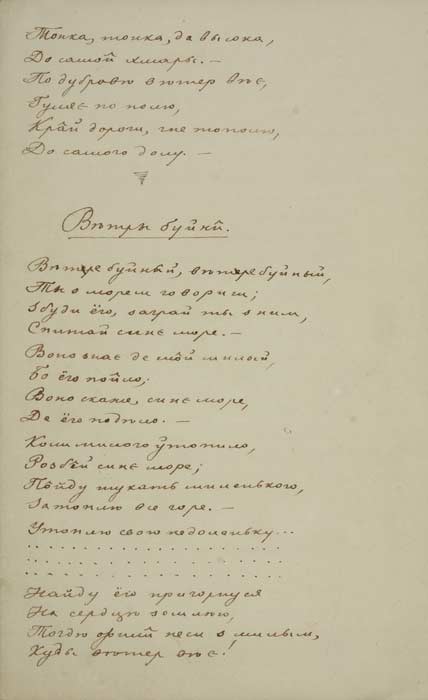 Тонка, тонка, да высока,
До самой хмары. —
По дубровѣ вѣтер вѣє,
Гуляє по полю,
Край дороги, гне тополю,
До самого долу. —
Вѣтры буйнй.
Вѣтре буйный, вѣтре буйный,
Ты з морем говориш;
Збуди ёго, заграй ты з ним,
Спитай синє море. —
Воно знає де мôй милый,
Бо ёго носило;
Воно скаже, синє море,
Де ёго подѣло. —
Коли милого ўтопило,
Розбєй синє море;
Пôйду шукать миленького,
Затоплю все горе. —
Утоплю свою недоленьку...
Найду ёго пригорнуся
На сердцю зомлѣю,
Тогдѣ неси з милым,
Куды вѣтер вѣє!